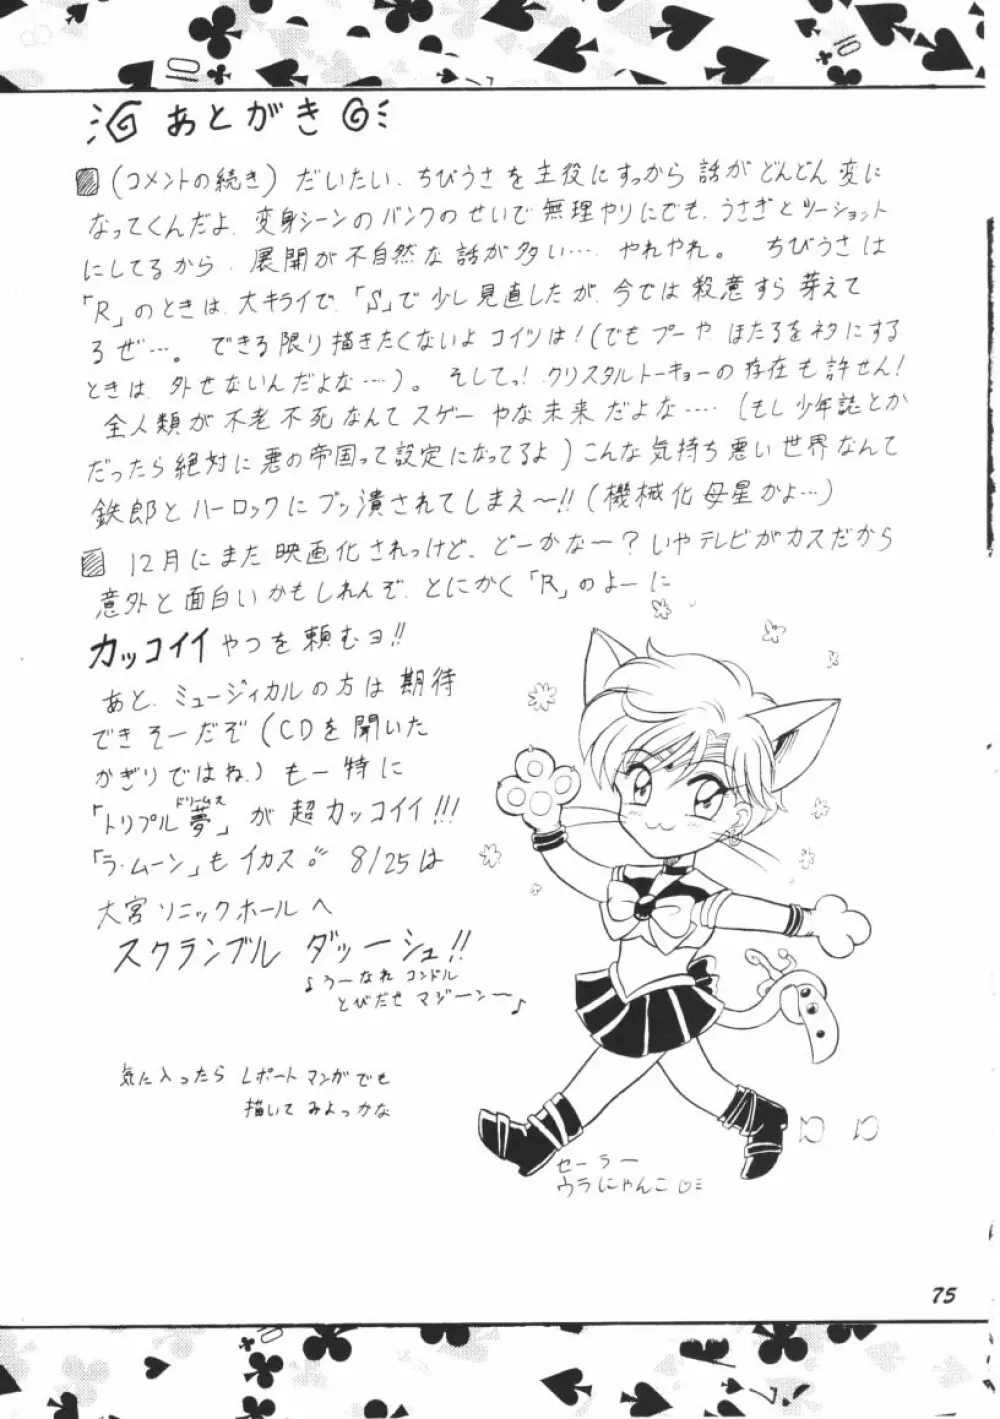 あとがき
(コメントの続き) だいたい、ちびうさを主役にすっから話がどんどん変に
なってくんだよ、変身シーンのバンクのせいで無理やりにでも、うさぎとツーショット
にしてるから、展開が不自然な話が多い…、やれやれ。 ちびうさは
「R」のときは、大キライで、「S」で少し見直したが、今では殺意すら芽えて
るぜ…。 できる限り描きたくないよコイツは!(でもプーや ほたるをネタにする
ときは、外せないんだよな…)。 そしてっ! クリスタルトーキョーの存在も許せん!
全人類が不老不死なんてスゲーやな未来だよな…. (もし少年誌とか
だったら絶対に悪の帝国って設定になってるよ)こんな気持ち悪い世界なんて
鉄郎とハーロックにブッ潰されてしまえ〜!! (機械化母星かよ…)
12月にまた映画化されっけど、どーかな〜?いやテレビがカスだから
意外と面白いかもしれんぞ、とにかく「R」のよーに
カッコイイやつを頼むヨ!!
あと、ミュージィカルの方は期待
できそーだぞ(CDを聞いた
かぎりではね) もー特に
ドリームス
「トリプル夢」が超カッコイイ!!!
「ラ・ムーン」もイカス 8/25は
大宮ソニックホールへ
スクランブル ダッーシュ!!
♪うーなれ コンドル
とびだせ マジーンー♪
気に入ったら レポートマンガでも
描いて みよっかな
セーラー
ウラにゃんこ
75
10
10